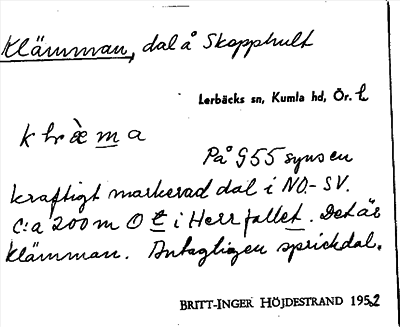 Klämman, dal å Skopphult
Lerbäcks sn, Kumla hd, Ör. l
På G 55 syns en
kraftigt markerad dal i NO.-SV.
C:a 200 m O t i Herrfallet. Det är
Klämman. Antagligen sprickdal.
BRITT-INGER HÖJDESTRAND 1952